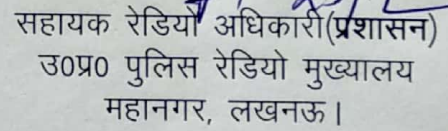 सहायक रेडियो अधिकारी(प्रशासन)
उ0प्र0 पुलिस रेडियो मुख्यालय
महानगर, लखनऊ।